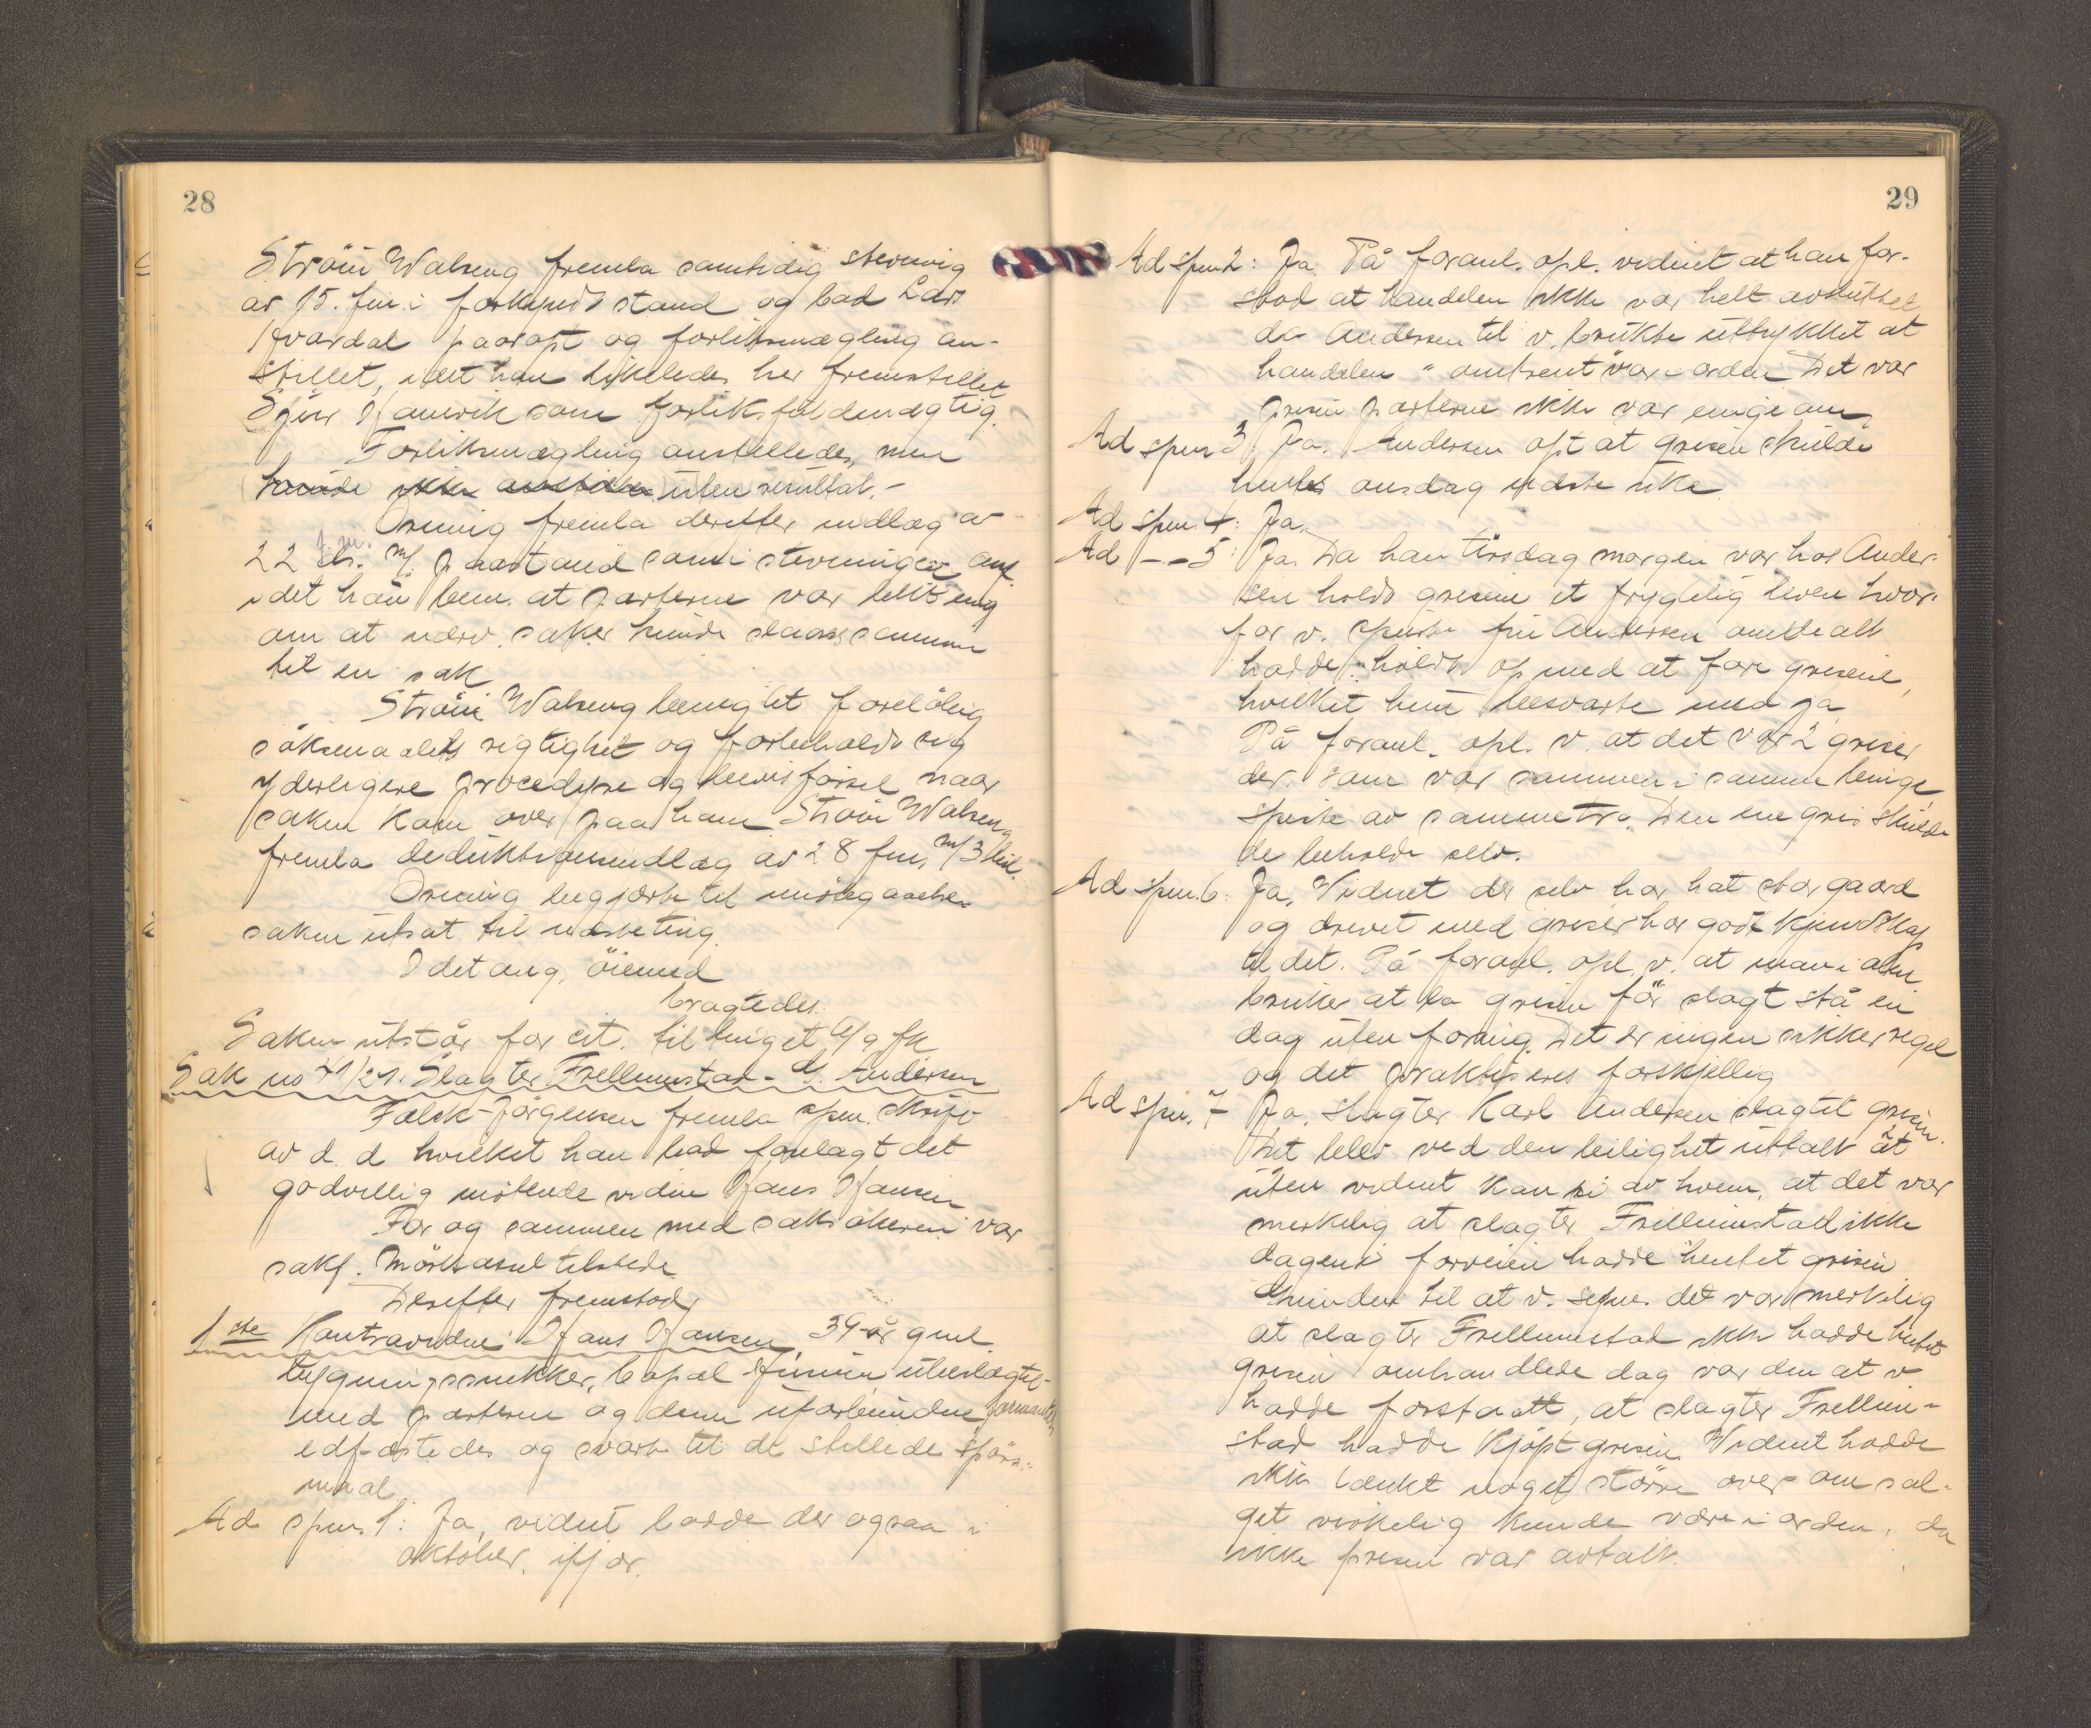 28
Ström Walseng fremla samtidig stevning
av 15. jin. i forkynds stand og bad
paaropt og forliksmægling an-
stillet, idet han likeledes her fremstillet
som forliksfuldmægtig.
Forliksmægling anstilledes, men
uten resultat.-
Orning fremla derefter indlæg av
22 m/ paastand som i stevningen
idet han bem. at parterne var helt enig
om at nærv. saker kunde slaaes sammen
til en sak
Ström Walseng benegtet foreløbig
søksmaalets rigtighet og forbeholdt sig
yderligere procedyre og bevisførsel naar
saken kom over paa ham Ström Walseng
fremla deduktionsindlæg av 28 m/ 3 bil.
Orning begjærte til imøtegaaelse
saken utsat til næste ting.
I det ang. öiemed
bragtedes:
Saken utstår for cit. til tinget 6/9 fk
Sak no 41/21. Slagter Frellumstad - G. Andersen
Falck-Jörgensen fremla spm. skrift
av d. d. hvilket han bad forelagt det
godvillig møtende vidne Hans Hansen
For og sammen med saksøkeren var
sakf. Mörkåsel tilstede
Derefter fremstod,
1ste Kontravidne: Hans Hansen, 39 år gml.
bygningssnekker, bopæl ubeslægtet
med parterne og dem uforbunden, formantes,
edfæstedes og svarte til de stillede spörs-
maal
Ad spm. 1: Ja, vidnet bodde der ogsaa i
oktober ifjor.
29
Ad spm 2: Ja. På foranl. opl. vidnet at han for-
stod at handelen ikke var helt avsluttet
da Andersen til v. brukte uttrykket at
handelen "omtrent" var i orden Det var
prisen parterne ikke var enige om,
Ad spm 3: Ja. Andersen opl at grisen skulde
hentes onsdag næste uke.
Ad spm. 4: Ja.
Ad -"- 5: Ja. Da han Tirsdag morgen var hos Ander-
sen holdt grisene et frygtelig leven hvor-
for v. spurte fru Andersen om de alt
hadde holdt op med at fore grisene,
hvilket hun besvarte med ja.
På foranl. opl. v. at det var 2 griser
der som var sammen i samme binge
spiste av samme tro. Den ene gris skulde
de beholde selv.
Ad spm. 6: Ja. Vidnet der selv har hat stor gaard
og drevet med griser har godt kjendskap
til det. På foranl. opl. v. at man i alm
bruker at la grisen för slagt stå en
dag uten foring. Det er ingen sikker regel
og det praktiseres forskjellig
Ad spm. 7 Ja. Slagter Karl Andersen slagtet grisen.
Det blev ved den leilighet uttalt at
uten vidnet kan si av hvem, at det var
merkelig at slagter Frellumstad ikke
dagen i forveien hadde hentet grisen
Grunden til at v. synes det var merkelig
at slagter Frellumstad ikke hadde hentet
grisen omhandlede dag var den at v
hadde forstaatt, at slagter Frellum-
stad hadde kjöpt grisen. Vidnet hadde
ikke tænkt noget större over om sal-
get virkelig kunde være i orden, da
ikke prisen var avtalt.